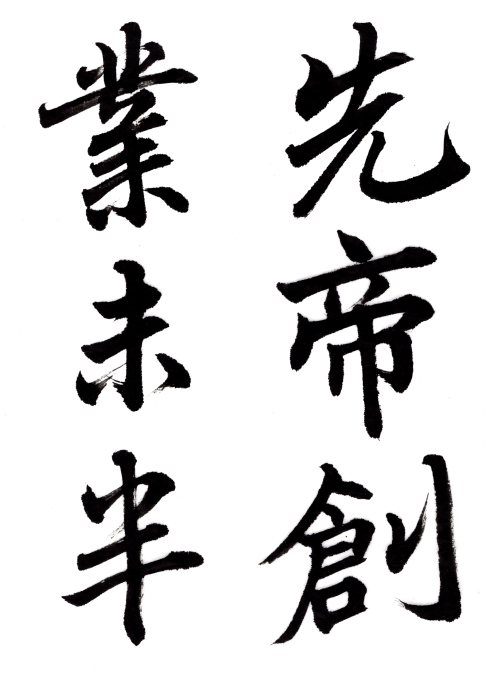 先帝創
業未半